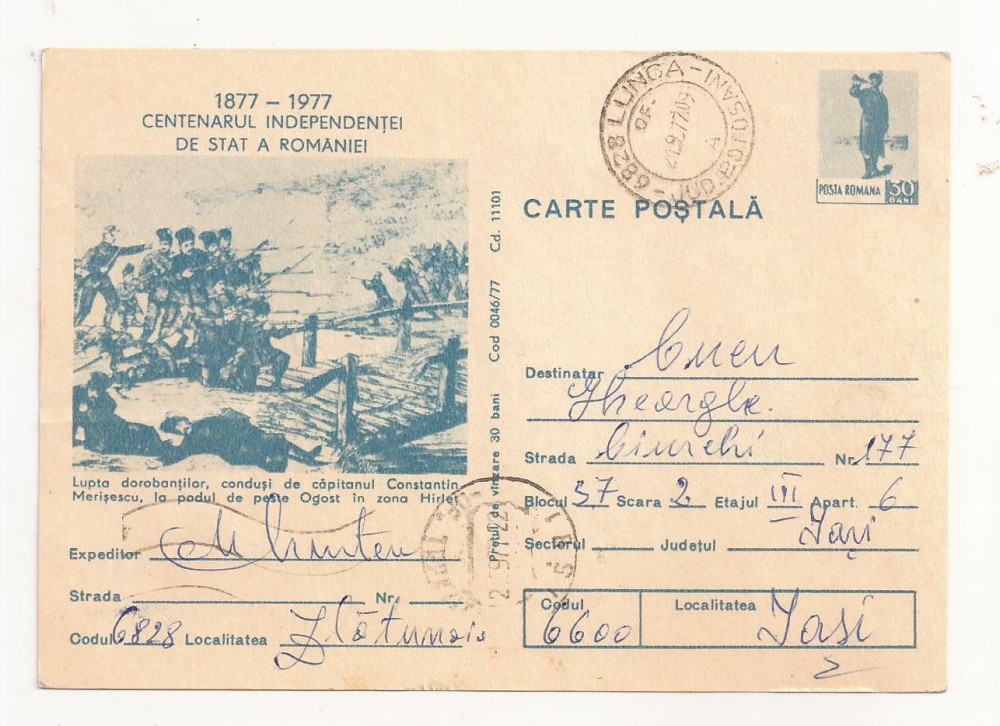 1877 – 1977
CENTENARUL INDEPENDENȚEI
DE STAT A ROMÂNIEI
Lupta dorobanților, conduși de căpitanul Constantin
Merișescu, la podul de peste Ogost în zona Hirleț
Expeditor
Strada Nr.
Codul 6828 Localitatea Zlătunoia
Prețul de vînzare 30 bani Cod 0046/77 Cd. 11101
6828 LUNCA - JUD. BOTOSANI
OF.
21.9.77.09
A
POSTA ROMANA 30
BANI
CARTE POȘTALĂ
Destinatar Cucu
Gheorghe.
Strada Ciurchi Nr 177
Blocul 37 Scara 2 Etajul III Apart. 6
Sectorul Județul Iași
Codul Localitatea
6600 Iași